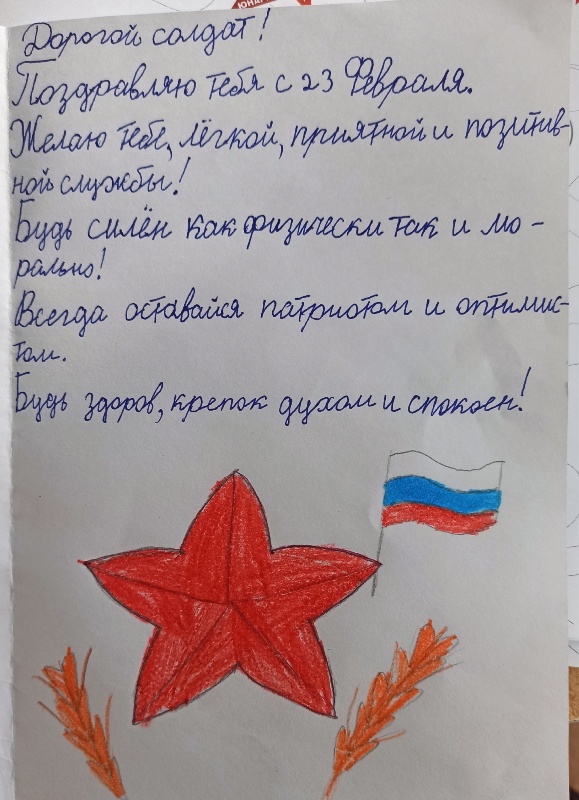 ЮНАР
Дорогой солдат!
Поздравляю тебя с 23 Февраля.
Желаю тебе, лёгкой, приятной и позитив-
ной службы!
Будь силён как физически так и мо-
рально!
Всегда оставайся патриотом и оптимис-
том.
Будь здоров, крепок духом и спокоен!